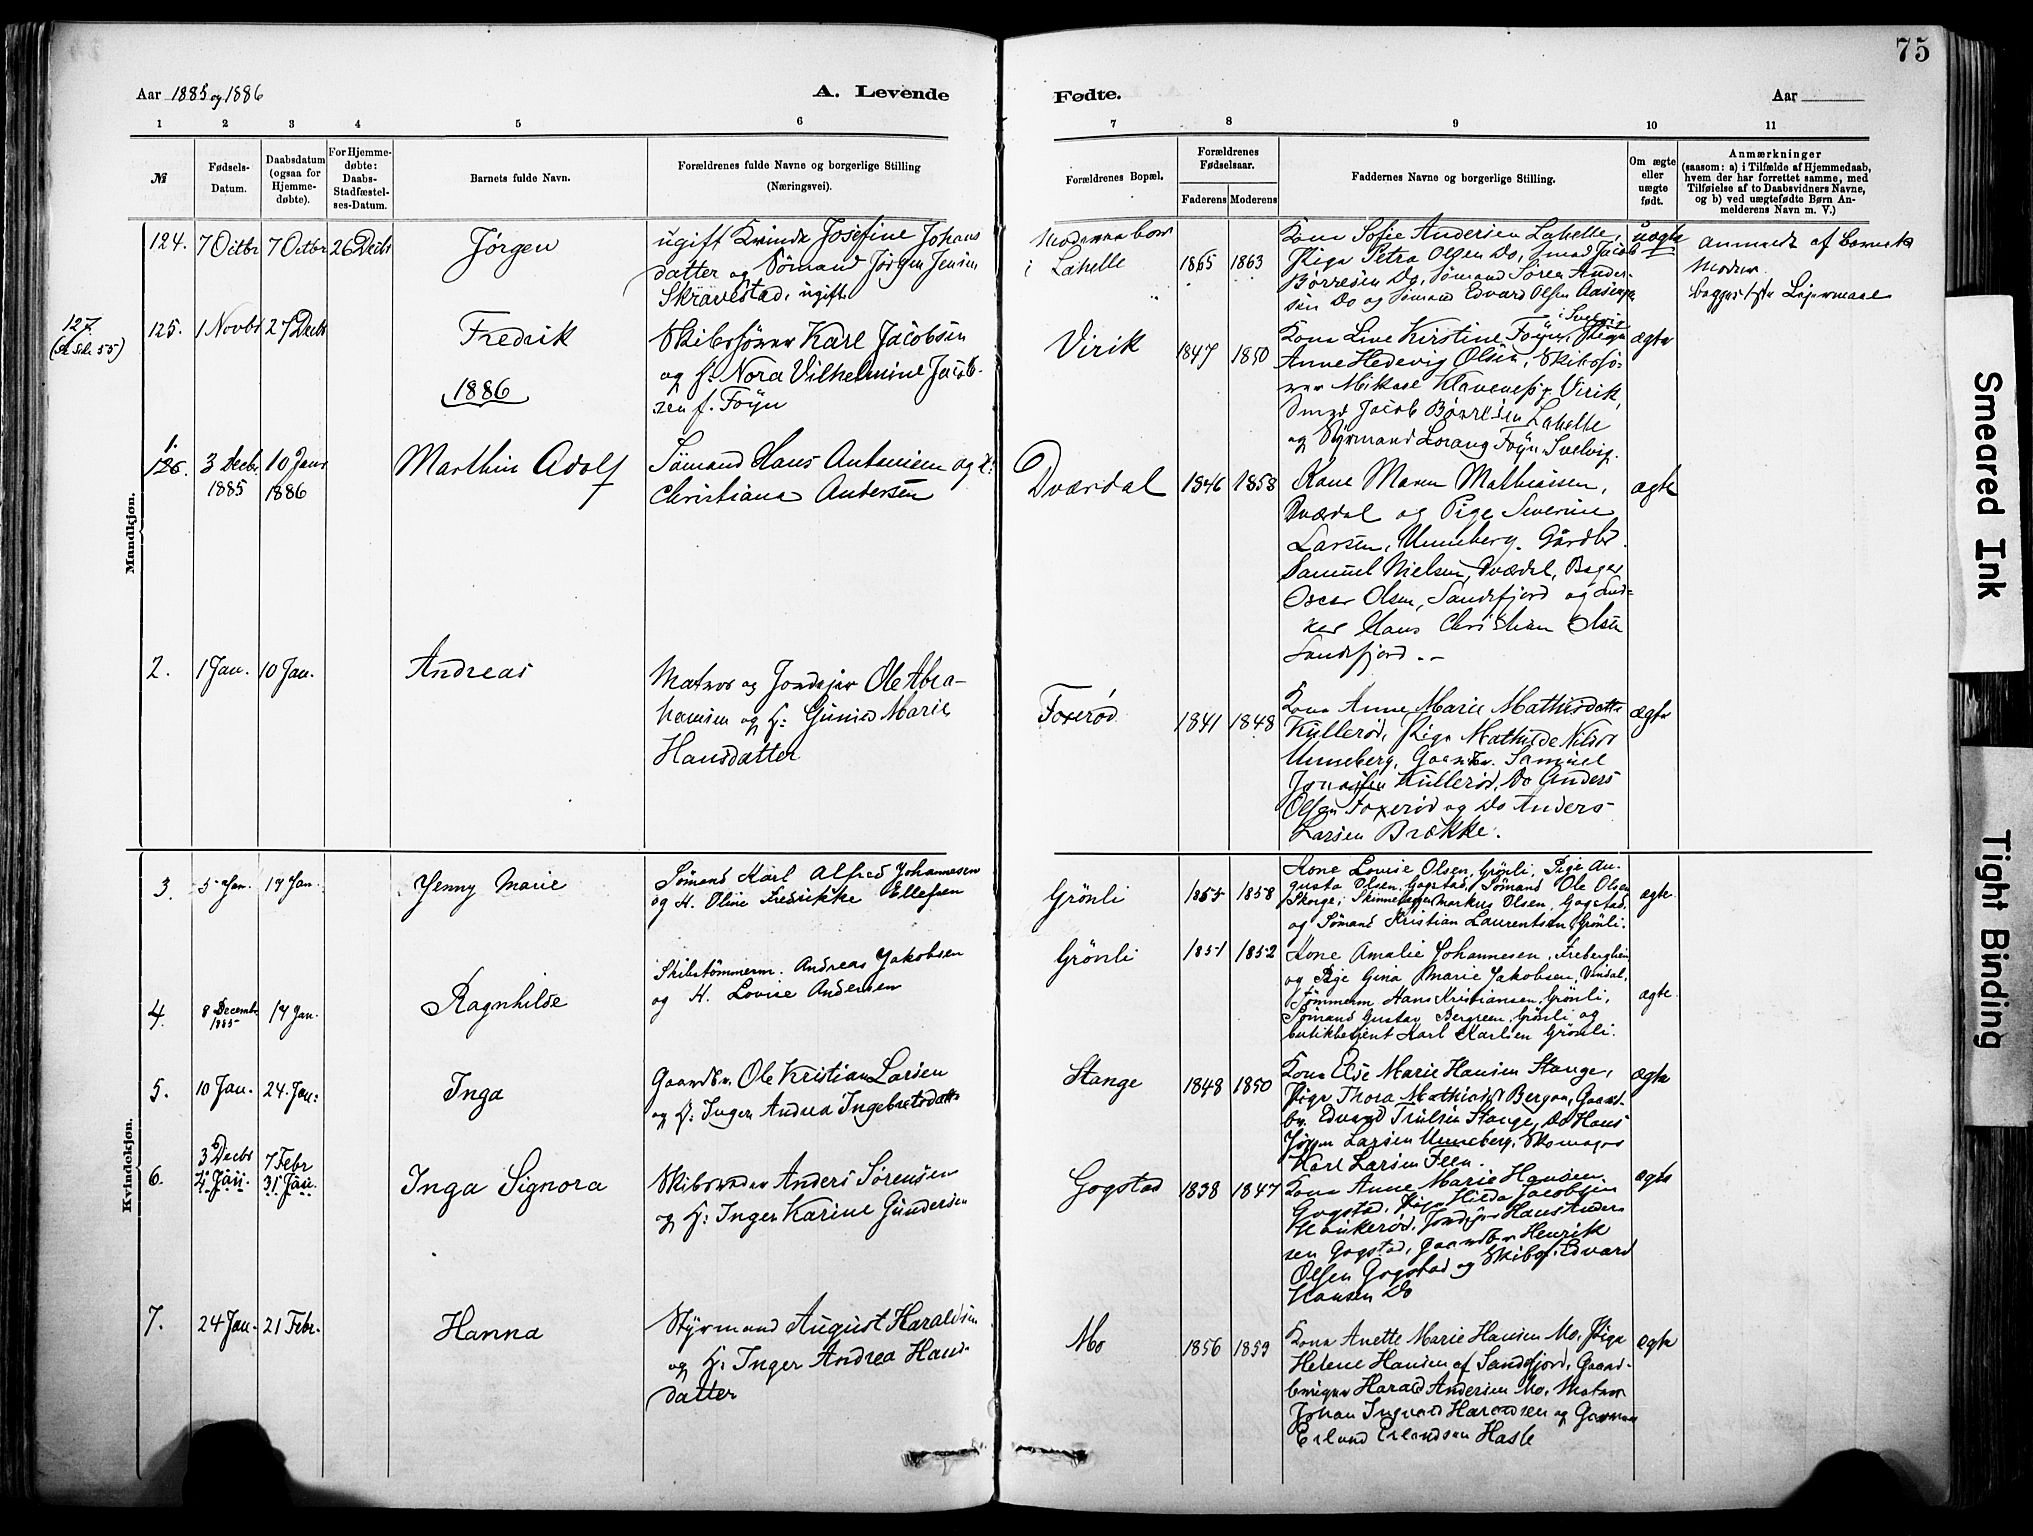 75
Aar 1885 og 1886
A. Levende
Fødte.
Aar
1 2 3 4 5 6 7 8 9 10 11
№
Fødsels-
Datum.
Daabsdatum
(ogsaa for
Hjemme-
døbte).
For Hjemme-
døbte:
Daabs-
Stadfæstel-
ses-Datum.
Barnets fulde Navn.
Forældrenes fulde Navne og borgerlige Stilling
(Næringsvei).
Forældrenes Bopæl.
Forældrenes
Fødselsaar.
Faderens Moderens
Faddernes Navne og borgerlige Stilling.
Om ægte
eller
uægte
født.
Anmærkninger
(saasom: a) i Tilfælde af Hjemmedaab,
hvem der har forrettet samme, med
Tilføielse af to Daabsvidners Navne,
og b) ved uægtefødte Børn An-
melderens Navn m. V.)
Mandkjøn.
124. 7 Octbr 7 Octbr 26 Decbr
Jørgen
ugift Kvinde Josefine Johans
datter og Sømand Jørgen Jensen
Skravestad, ugift
i Lahelle
1865 1863
Kona Sofie Andersen Lahelle,
Piga Petra Olsen Do, Smed Jacob
Børresen Do, Sømand Søren Ander-
sen Do og Sømand Edvard Olsen
uægte
anmeldt af Barnets
Moder
127.
125. 1 Novbr 27 Decbr
Fredrik
1886
Skibsfører Karl Jacobsen
og h: Nora Vilhelmine Jacob-
sen f. Føyn
Virik
1847 1850
i Svelvig
Kona Line Kirstine Føyn, Piga
Anne Hedevig Olsen, Skibsfø-
rer Mikael Klavenes, Virik,
Smed Jacob Børresen Lahelle
og Styrmand Lorang Føyn Svelvig.
ægte
1.
126. 3 Decbr 10 Janr
1885 1886
Marthin Adolf
Sømand Hans Antonisen og h:
Christiana Andersen
Dværdal
1846 1858
Kone Maren Mathiasen,
Dværdal og Pige Severine
Larsen, Unneberg. Gårdbr.
Samuel Nielsen, Dvædal, Bager
Oscar Olsen, Sandefjord og
Hans Christian Olsen
Sandefjord.
ægte
2. 1 Jan. 10 Jan.
Andreas
Matros og Jordejer Ole Abra-
hamsen og h: Gunild Marie
Hansdatter
Foxerød
1841 1848
Kona Anne Marie Mathisdatter
Kullerød, Piga Mathilde Nilsen
Unneberg, Gaardbr. Samuel
Jonassen Kullerød, Do Anders
Olsen Foxerød og Do Anders
Larsen Brække.
ægte
Kvindekjøn.
3. 5 Jan. 17 Jan.
Jenny Marie
Sømand Karl Alfred Johannesen
og H. Oline Fredrikke Ellefsen
Grønli
1855 1858
Kone Lovise Olsen, Grønli, Pige Au-
gusta Olsen, Gogstad, Sømand Ole Olsen
Skorge, Markus Olsen, Gogstad
og Sømand Kristian Laurentsen, Grønli.
ægte
4. 8 Decembr 17 Jan.
1885
Ragnhilde
Skibstømmerm. Andreas Jakobsen
og H. Lovise Andersen
Grønli
1851 1852
Kone Amalie Johannesen, Freberghein
og Pige Gina Marie Jakobsen, Vindal,
Tømmerm Hans Kristiansen, Grønli,
Sømand Gustav Bergreen, Grønli og
butikbetjent Karl Karlsen Grønli.
ægte
5. 10 Jan. 24 Jan:
Inga
Gaardbr. Ole Kristian Larsen
og h: Inger Andrea Ingebretsdatter
Stange
1848 1850
Kona Else Marie Hansen Stange,
Piga Thora Mathisen Bergan, Gaard-
br. Edvard Trulsen Stange, Do Hans
Jørgen Larsen Unneberg, Skomager
Karl Larsen Feen.
ægte
6. 3 Decbr 7 Febr
4 Jan. 31 Jan.
Inga Signora
Skibsreder Anders Sørensen
og h: Inger Karine Gundersen
Gogstad
1838 1847
Kona Anne Marie Hansen
Gogstad, Piga Hilda Jacobsen
Haukerød, Jordejer Hans Ander
sen Gogstad, Gaardbr Henrik
Olsen Gogstad og Skibsf. Edvard
Hansen Do
ægte
7. 24 Jan. 21 Febr.
Hanna
Styrmand August Haraldsen
og h: Inger Andrea Hans
datter
Mo
1856 1859
Kona Anette Marie Hansen Mo, Piga
Helene Hansen af Sandefjord, Gaard-
brúger Harald Andersen Mo, Matros
Johan Ingvard Haraldsen og Gaardm
Erlend Erlandsen Hasle
ægte
Smeared Ink
Tight Binding